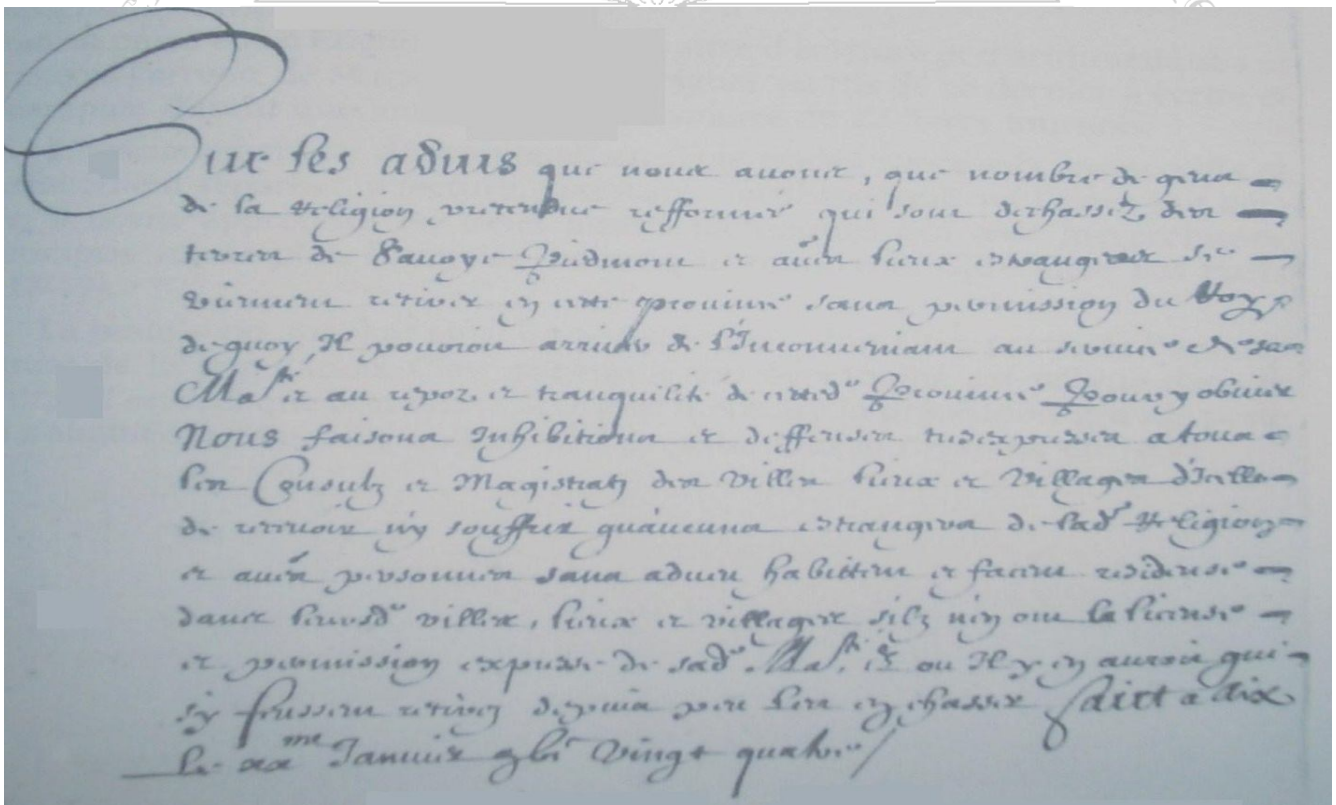 Sur les aduis que nous auons, que nombre de gens
de la Religion pretendue refformée qui sont dechassez des
terres de Sauoye Piedmont et au̅es lieux estrangers se
viennent retirer en cette prouince sans permission du Roy,
de quoy, Il pouroit arriuer de l'Inconueniant au seruice de sa
Ma.té et au repoz et tranquilité de cetted.e Prouince Pour y obuier
Nous faisons Inhibitions et deffenses tresexpresses a tous
les Consulz et Magistratz des villes lieux et villages d'Icelle
de receuoir n'y souffrir qu'aucuns estrangers de lad.e Religion
et au̅es personnes sans adueu habittent et facent residense
dans leursd.e villes, lieux et villages silz n'en ont la license
et permission expresse de sad.e Ma.té Et ou Il y en auroit qui
s'y fussent retirez depuis peu les en chasser faict a Aix
le xx.me Januier vingt quatre /